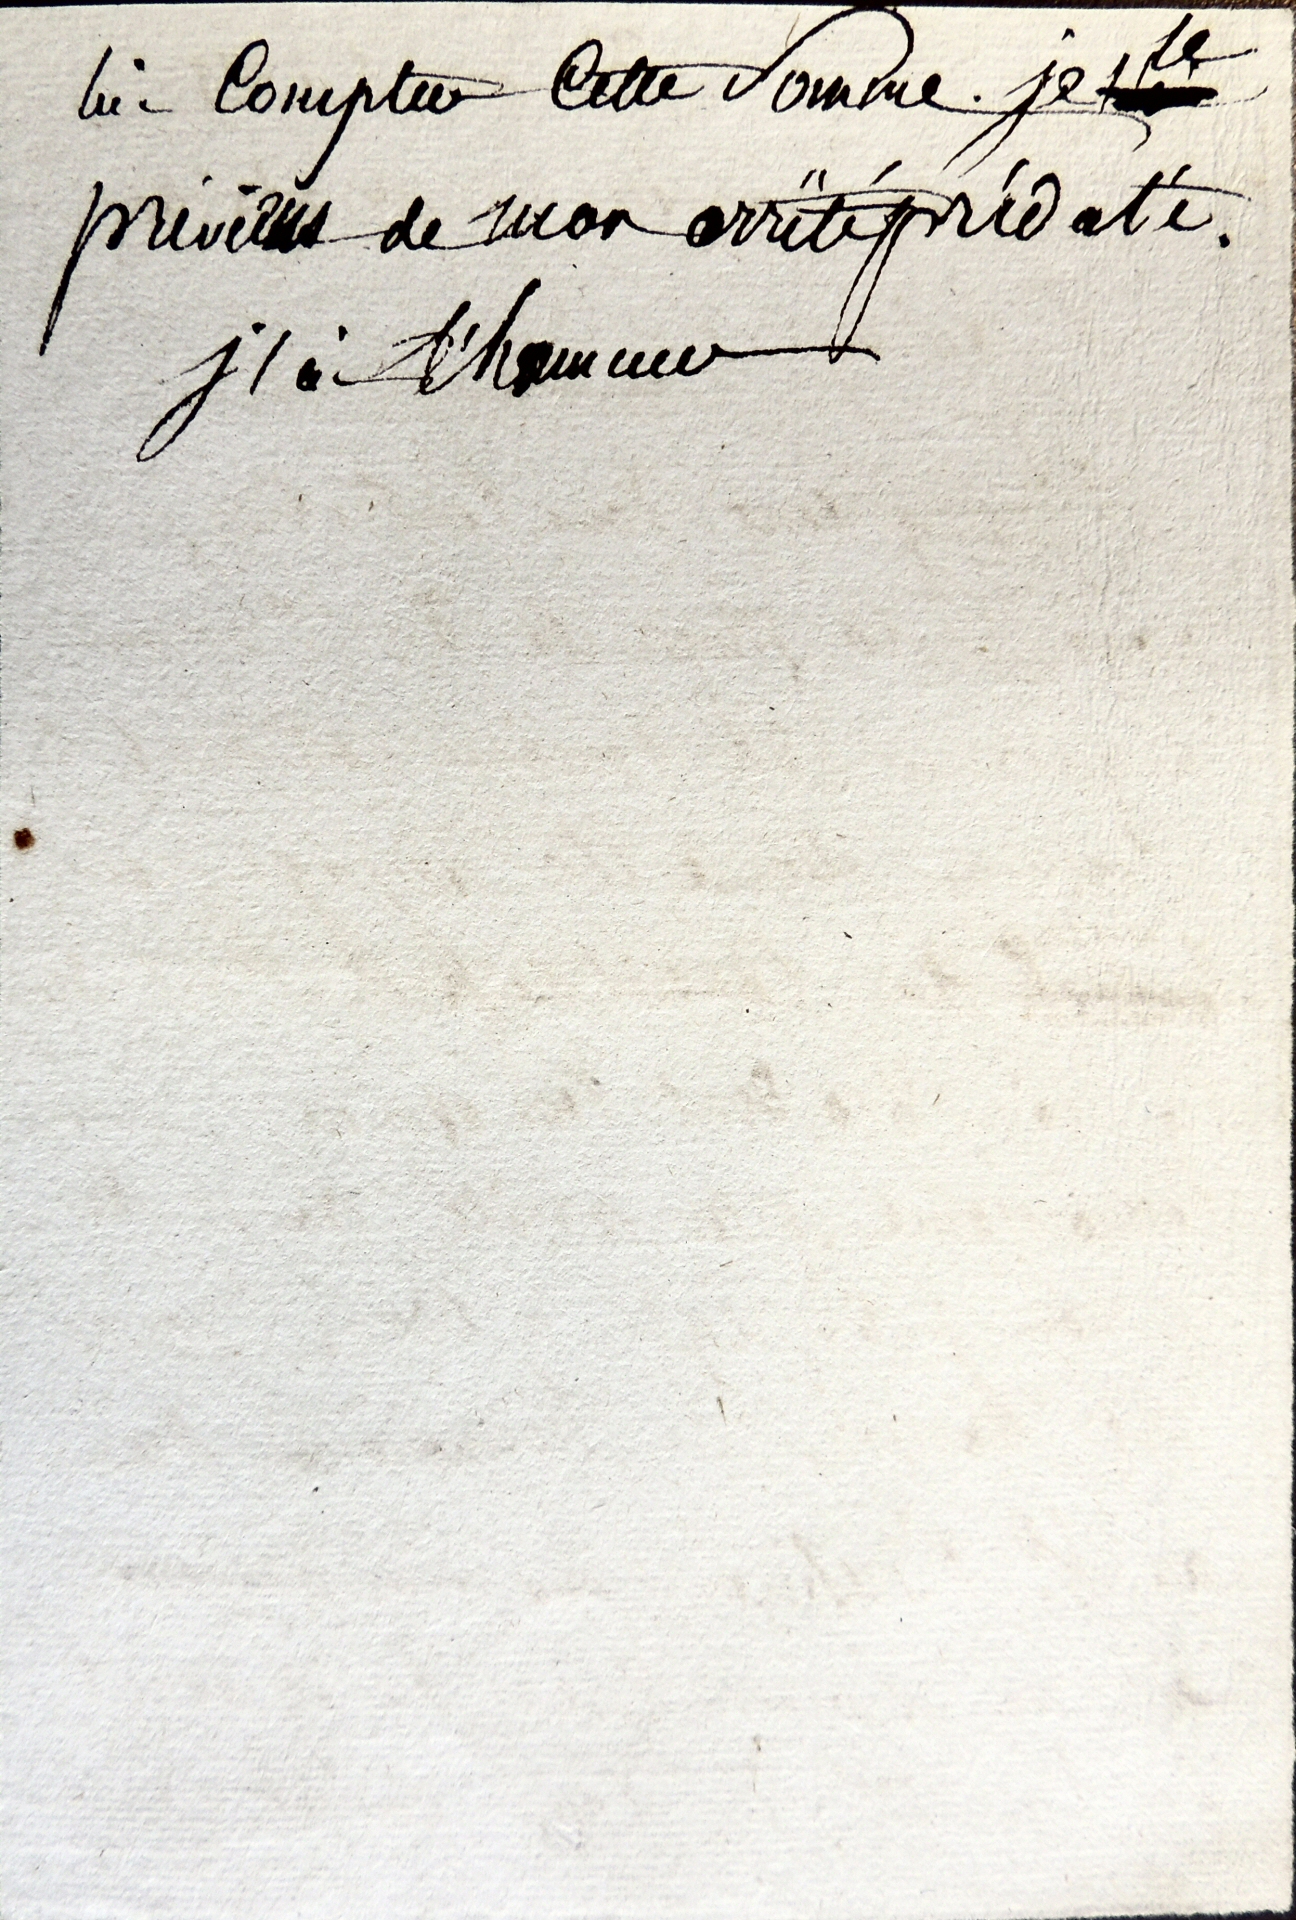 lui Compter Cette Somme. je le
préviens de mon arrêté prédaté.
j'ai l'honneur